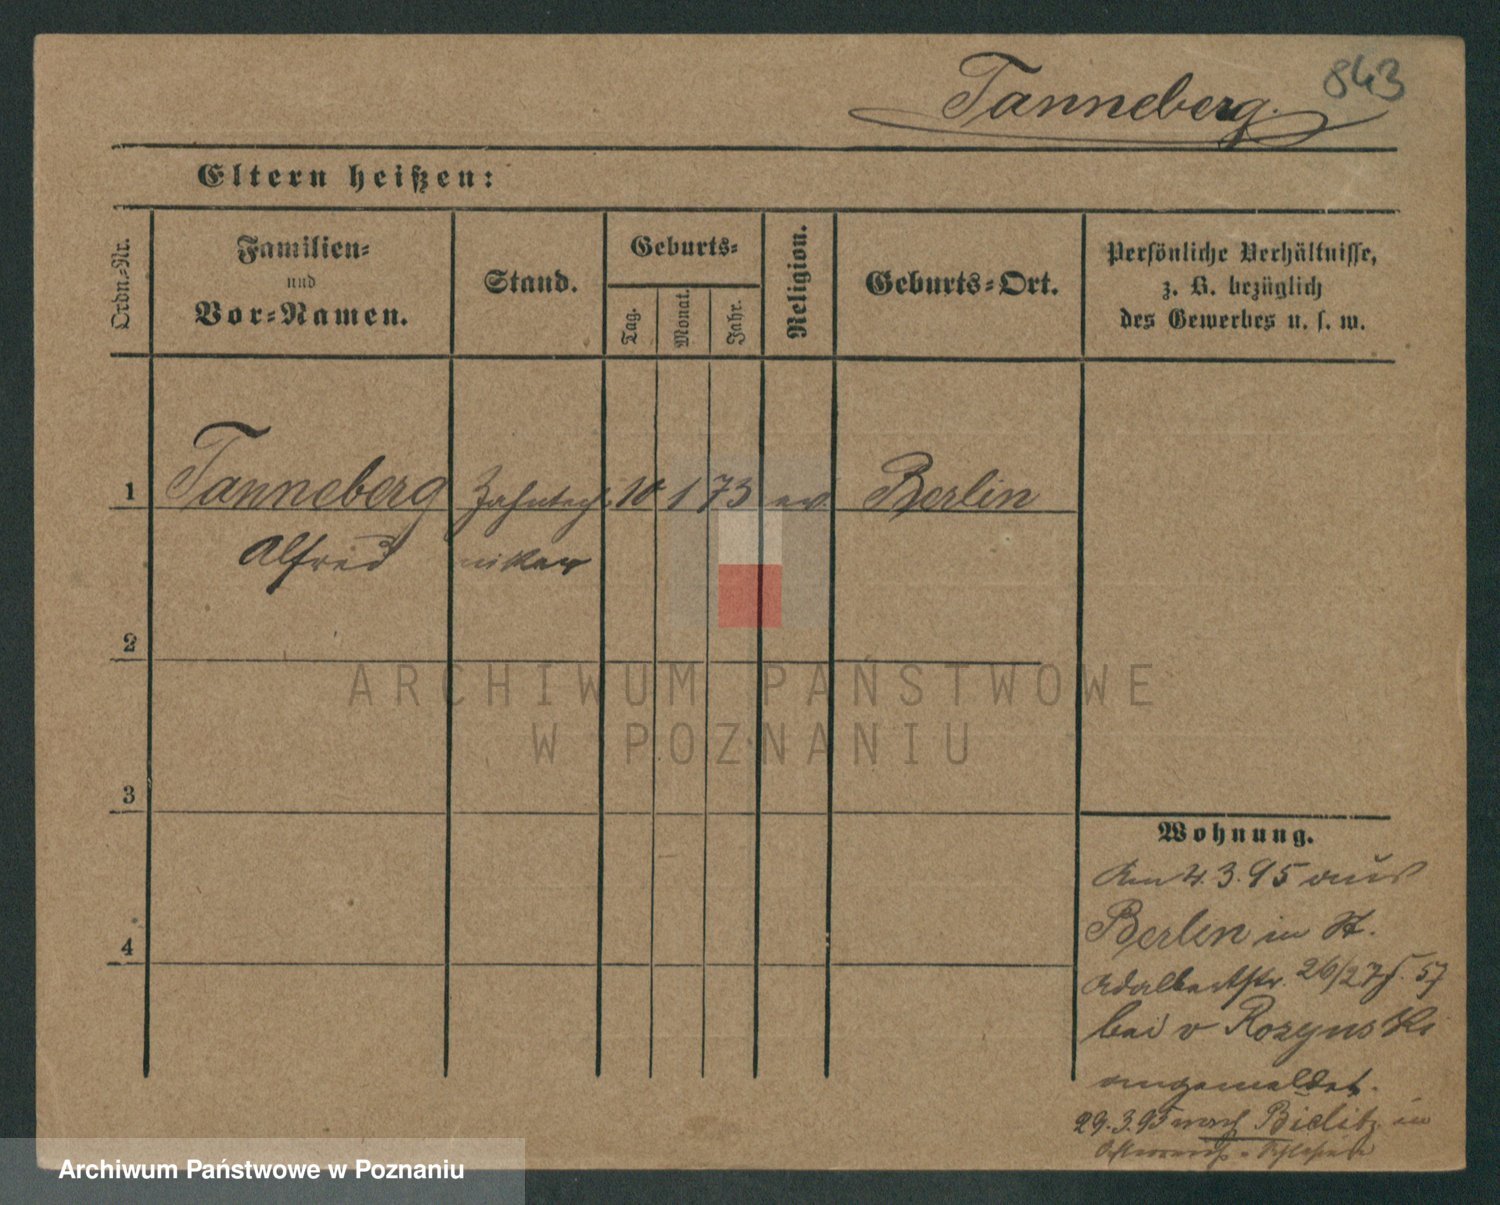 843
Tanneberg.
Eltern heißen:
Ordn.=Nr.
Familien=
und
Vor=Namen.
Stand.
Geburts=
Tag.
Monat.
Jahr.
Religion.
Geburts=Ort.
Persönliche Verhältnisse,
z. B. bezüglich
des Gewerbes u. s. w.
1 Tanneberg Zahntech= 10 1 73 ev. Berlin
Alfred niker
2
3
4
Wohnung.
Am 4.3.95 aus
Berlin in St.
Adalbertstr. 26/27 57
bei v Rozynski
angemeldet.
29.3.95 nach Bielitz in
Österreich Schlesien
ARCHIWUM PAŃSTWOWE
W POZNANIU
Archiwum Państwowe w Poznaniu